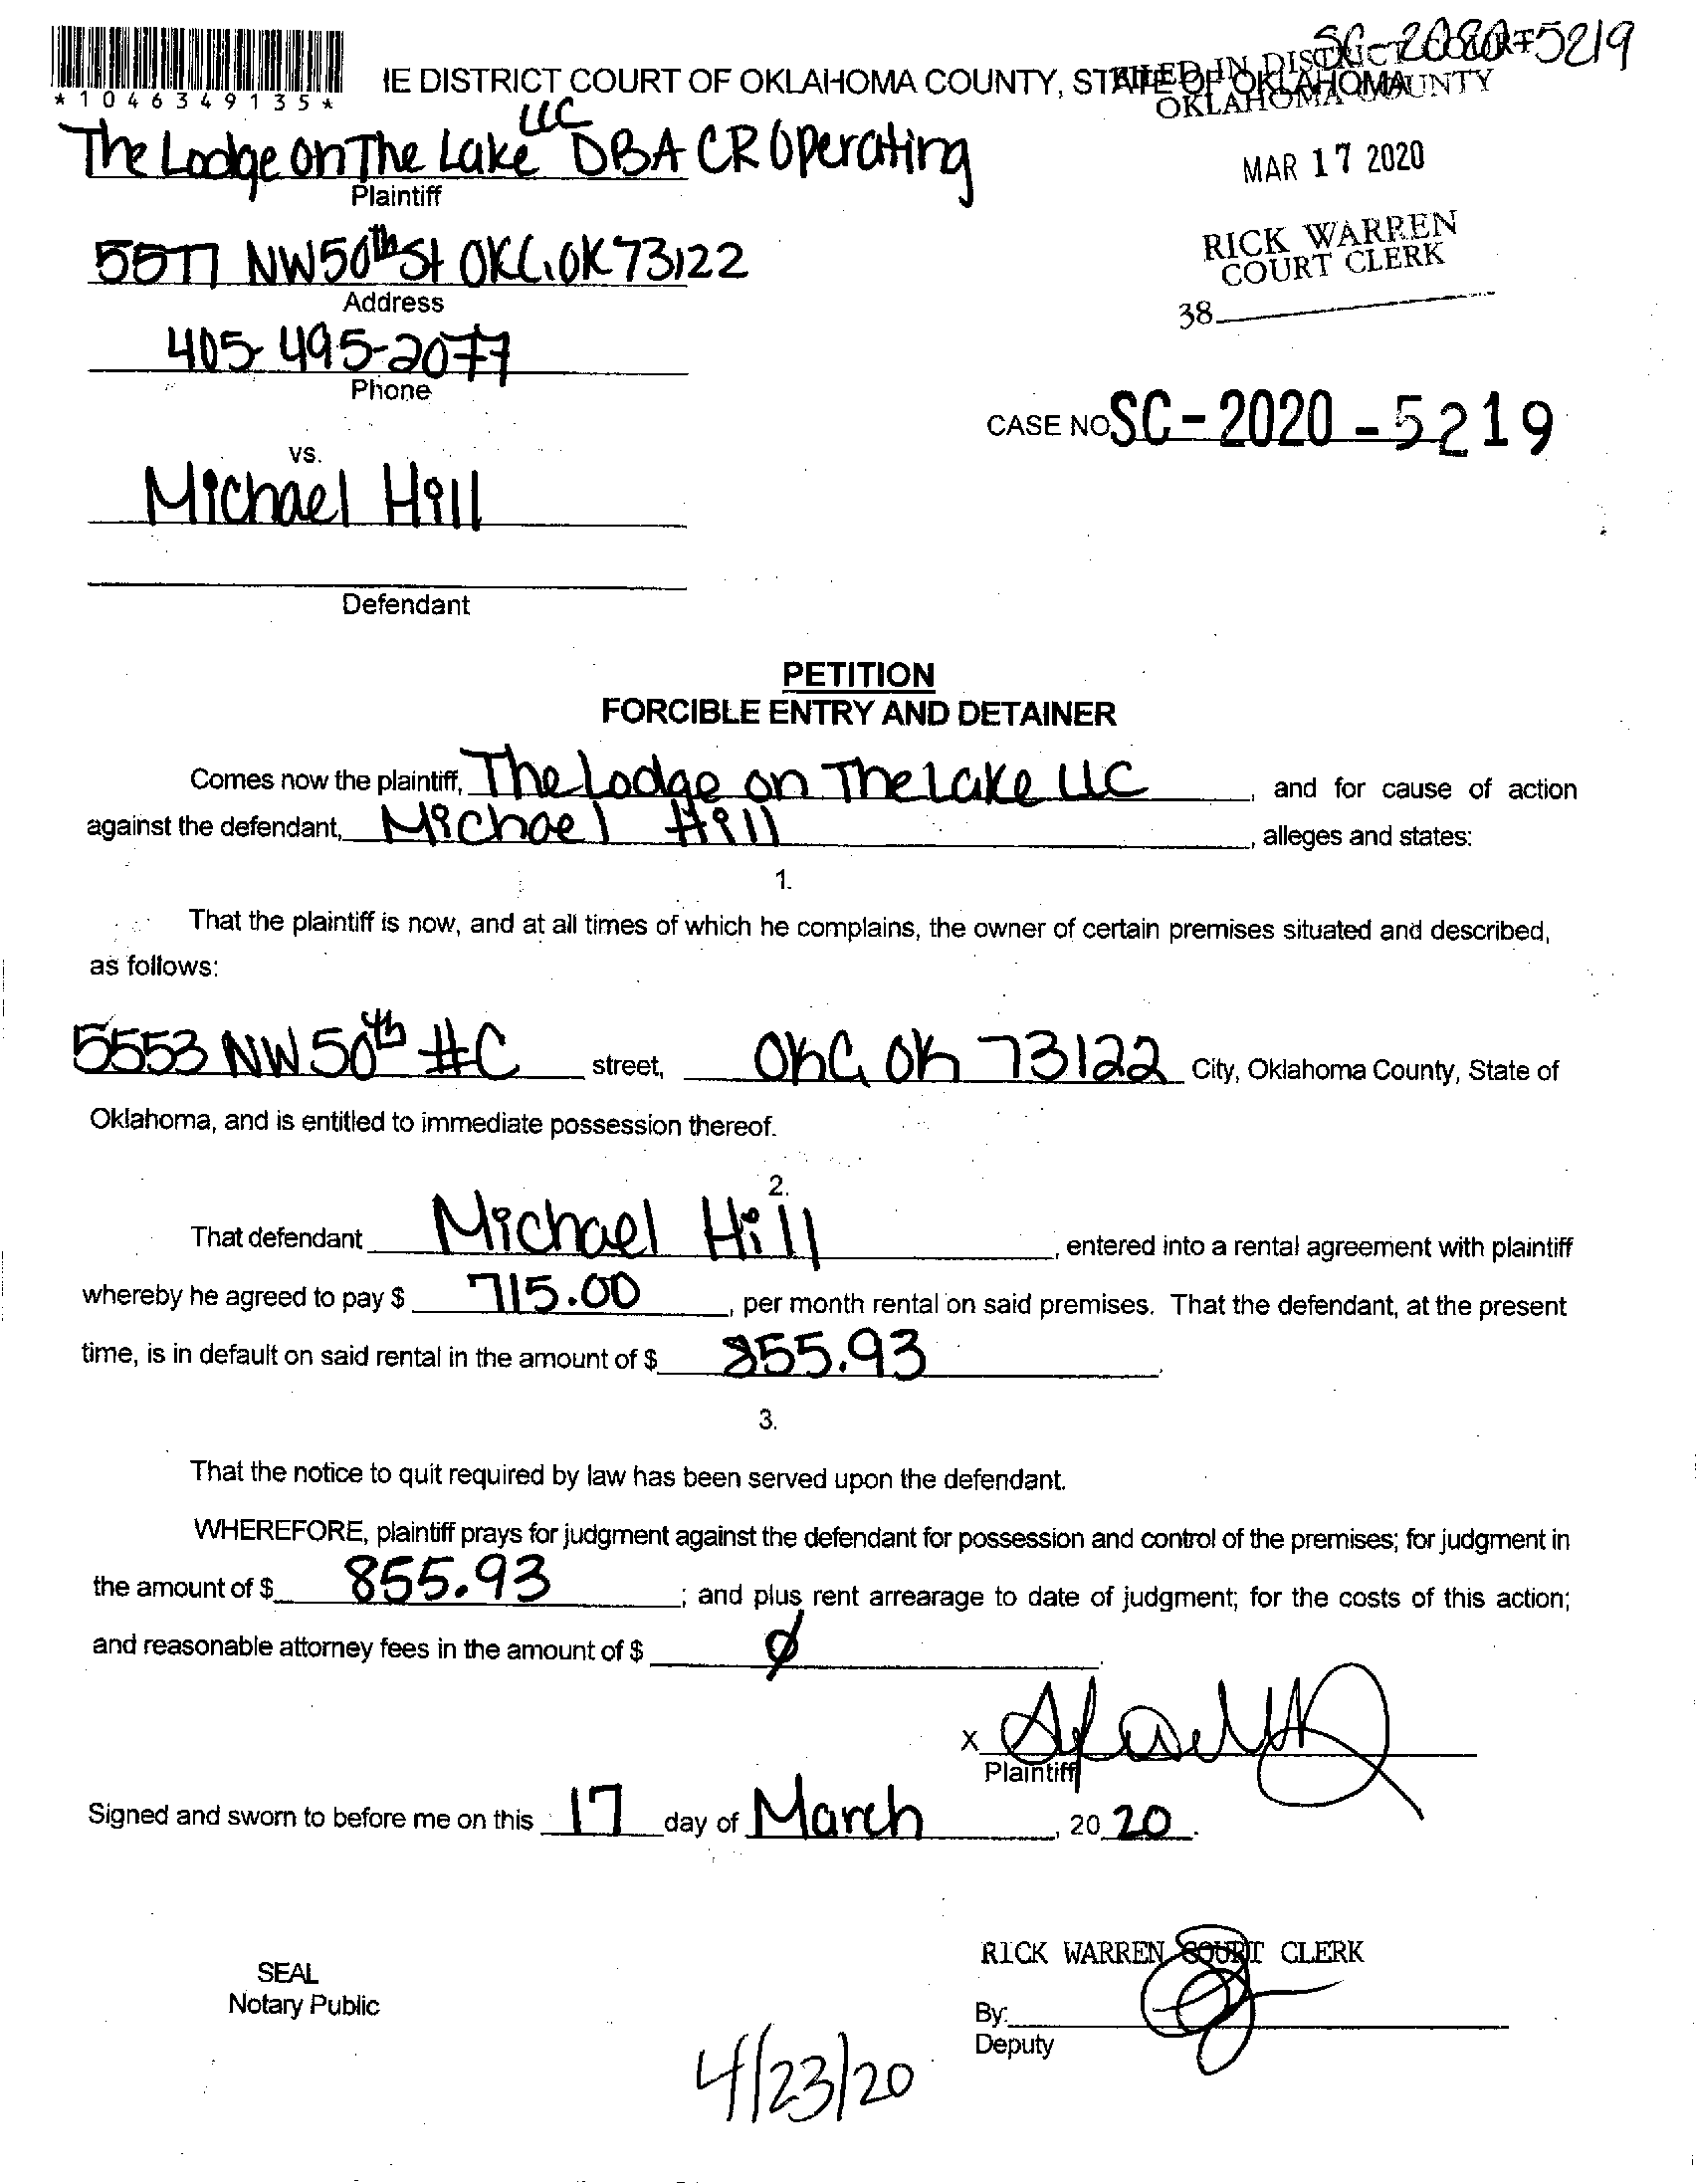 SC-2020-5219
*1046349135*
IE DISTRICT COURT OF OKLAHOMA COUNTY, STATE OF OKLAHOMA
FILED IN DISTRICT COURT
OKLAHOMA COUNTY
The Lodge on The Lake LLC DBA CR Operating
Plaintiff
MAR 17 2020
RICK WARREN
COURT CLERK
38
5577 NW 50th St OKC, OK 73122
Address
405-495-2077
Phone
CASE NO SC-2020-5219
vs.
Michael Hill
Defendant
PETITION
FORCIBLE ENTRY AND DETAINER
Comes now the plaintiff, The Lodge on The Lake LLC, and for cause of action
against the defendant, Michael Hill, alleges and states:
1.
That the plaintiff is now, and at all times of which he complains, the owner of certain premises situated and described,
as follows:
5553 NW 50th #C street, OKC, OK 73122 City, Oklahoma County, State of
Oklahoma, and is entitled to immediate possession thereof.
2.
That defendant Michael Hill, entered into a rental agreement with plaintiff
whereby he agreed to pay $ 715.00, per month rental on said premises. That the defendant, at the present
time, is in default on said rental in the amount of $ 855.93.
3.
That the notice to quit required by law has been served upon the defendant.
WHEREFORE, plaintiff prays for judgment against the defendant for possession and control of the premises; for judgment in
the amount of $ 855.93; and plus rent arrearage to date of judgment; for the costs of this action;
and reasonable attorney fees in the amount of $ ∅.
x
Plaintiff
Signed and sworn to before me on this 17 day of March, 20 20.
RICK WARREN COURT CLERK
SEAL
Notary Public
By:
Deputy
4/23/20